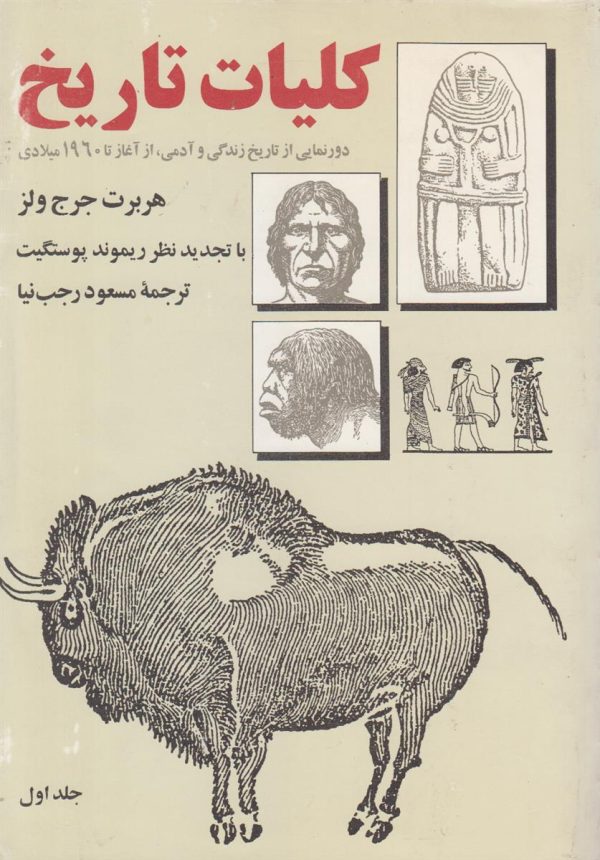 کلیات تاریخ
دورنمایی از تاریخ زندگی و آدمی، از آغاز تا ۱۹۶۰ میلادی
هربرت جرج ولز
با تجدید نظر ریموند پوستگیت
ترجمهٔ مسعود رجب‌نیا
جلد اول